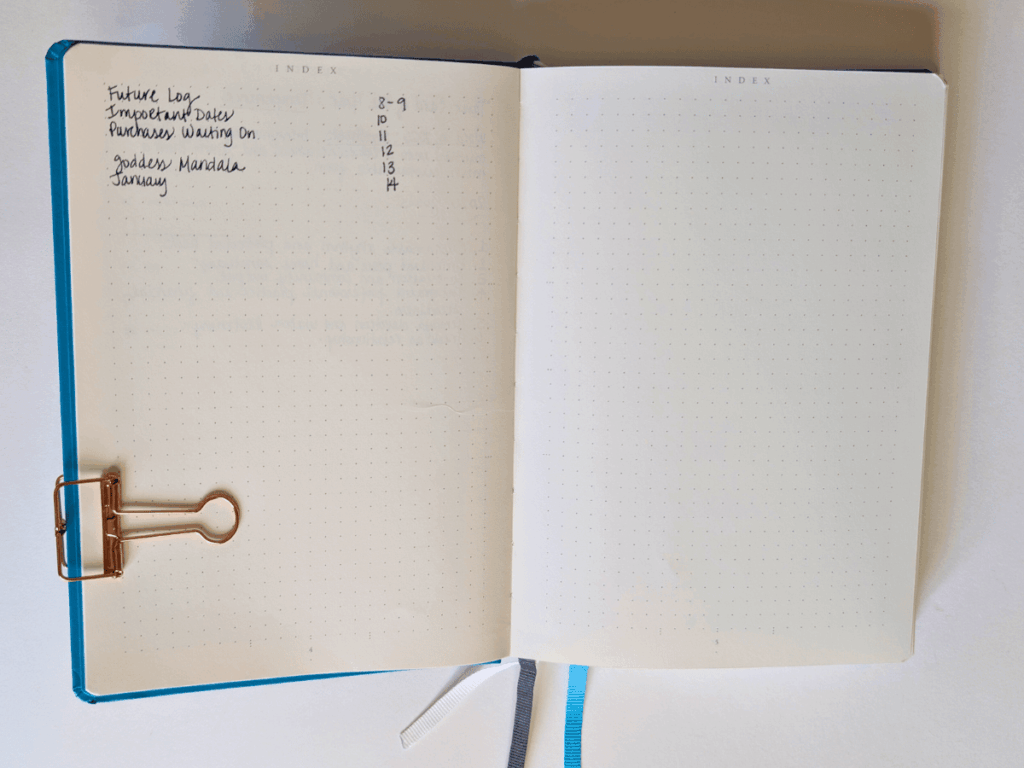 INDEX
Future Log 8-9
Important Dates 10
Purchases Waiting On 11
12
Goddess Mandala 13
January 14
INDEX